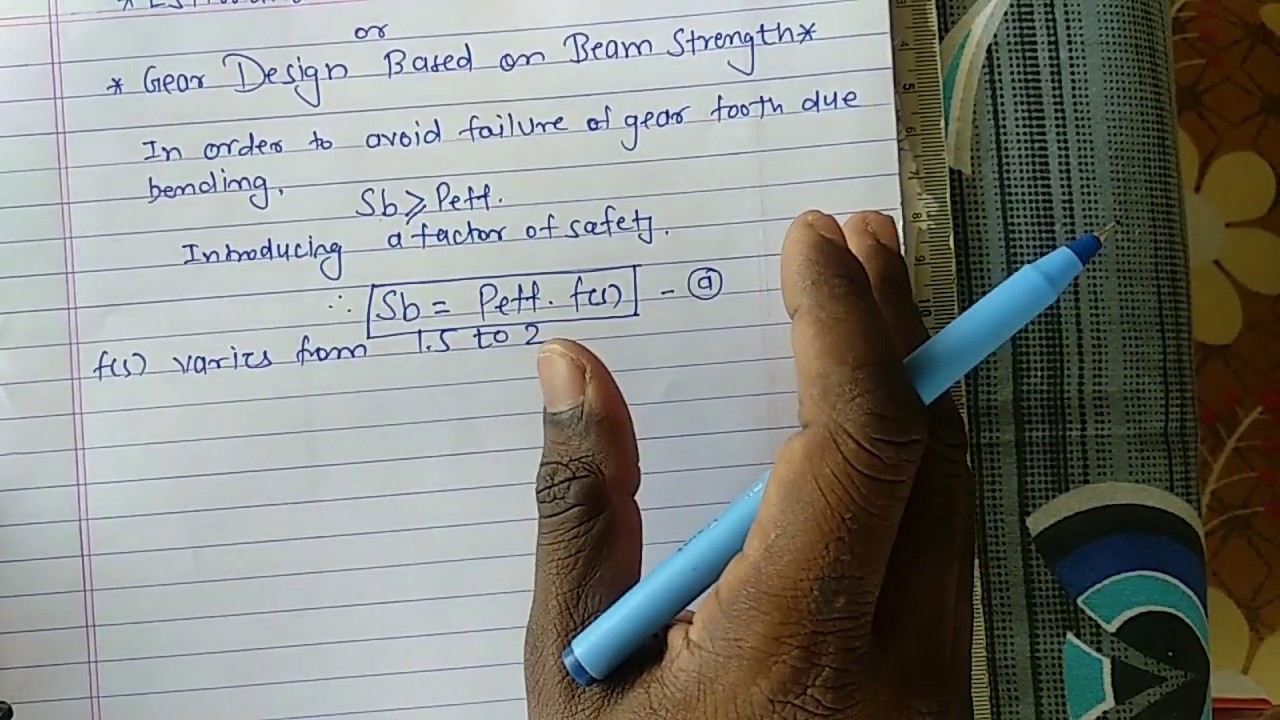 or
* Gear Design Based on Beam Strength*
In order to avoid failure of gear tooth due
bending.
Sb ≥ Peff.
Introducing a factor of safety.
∴ Sb = Peff. f(s) - ⓐ
f(s) varies from 1.5 to 2